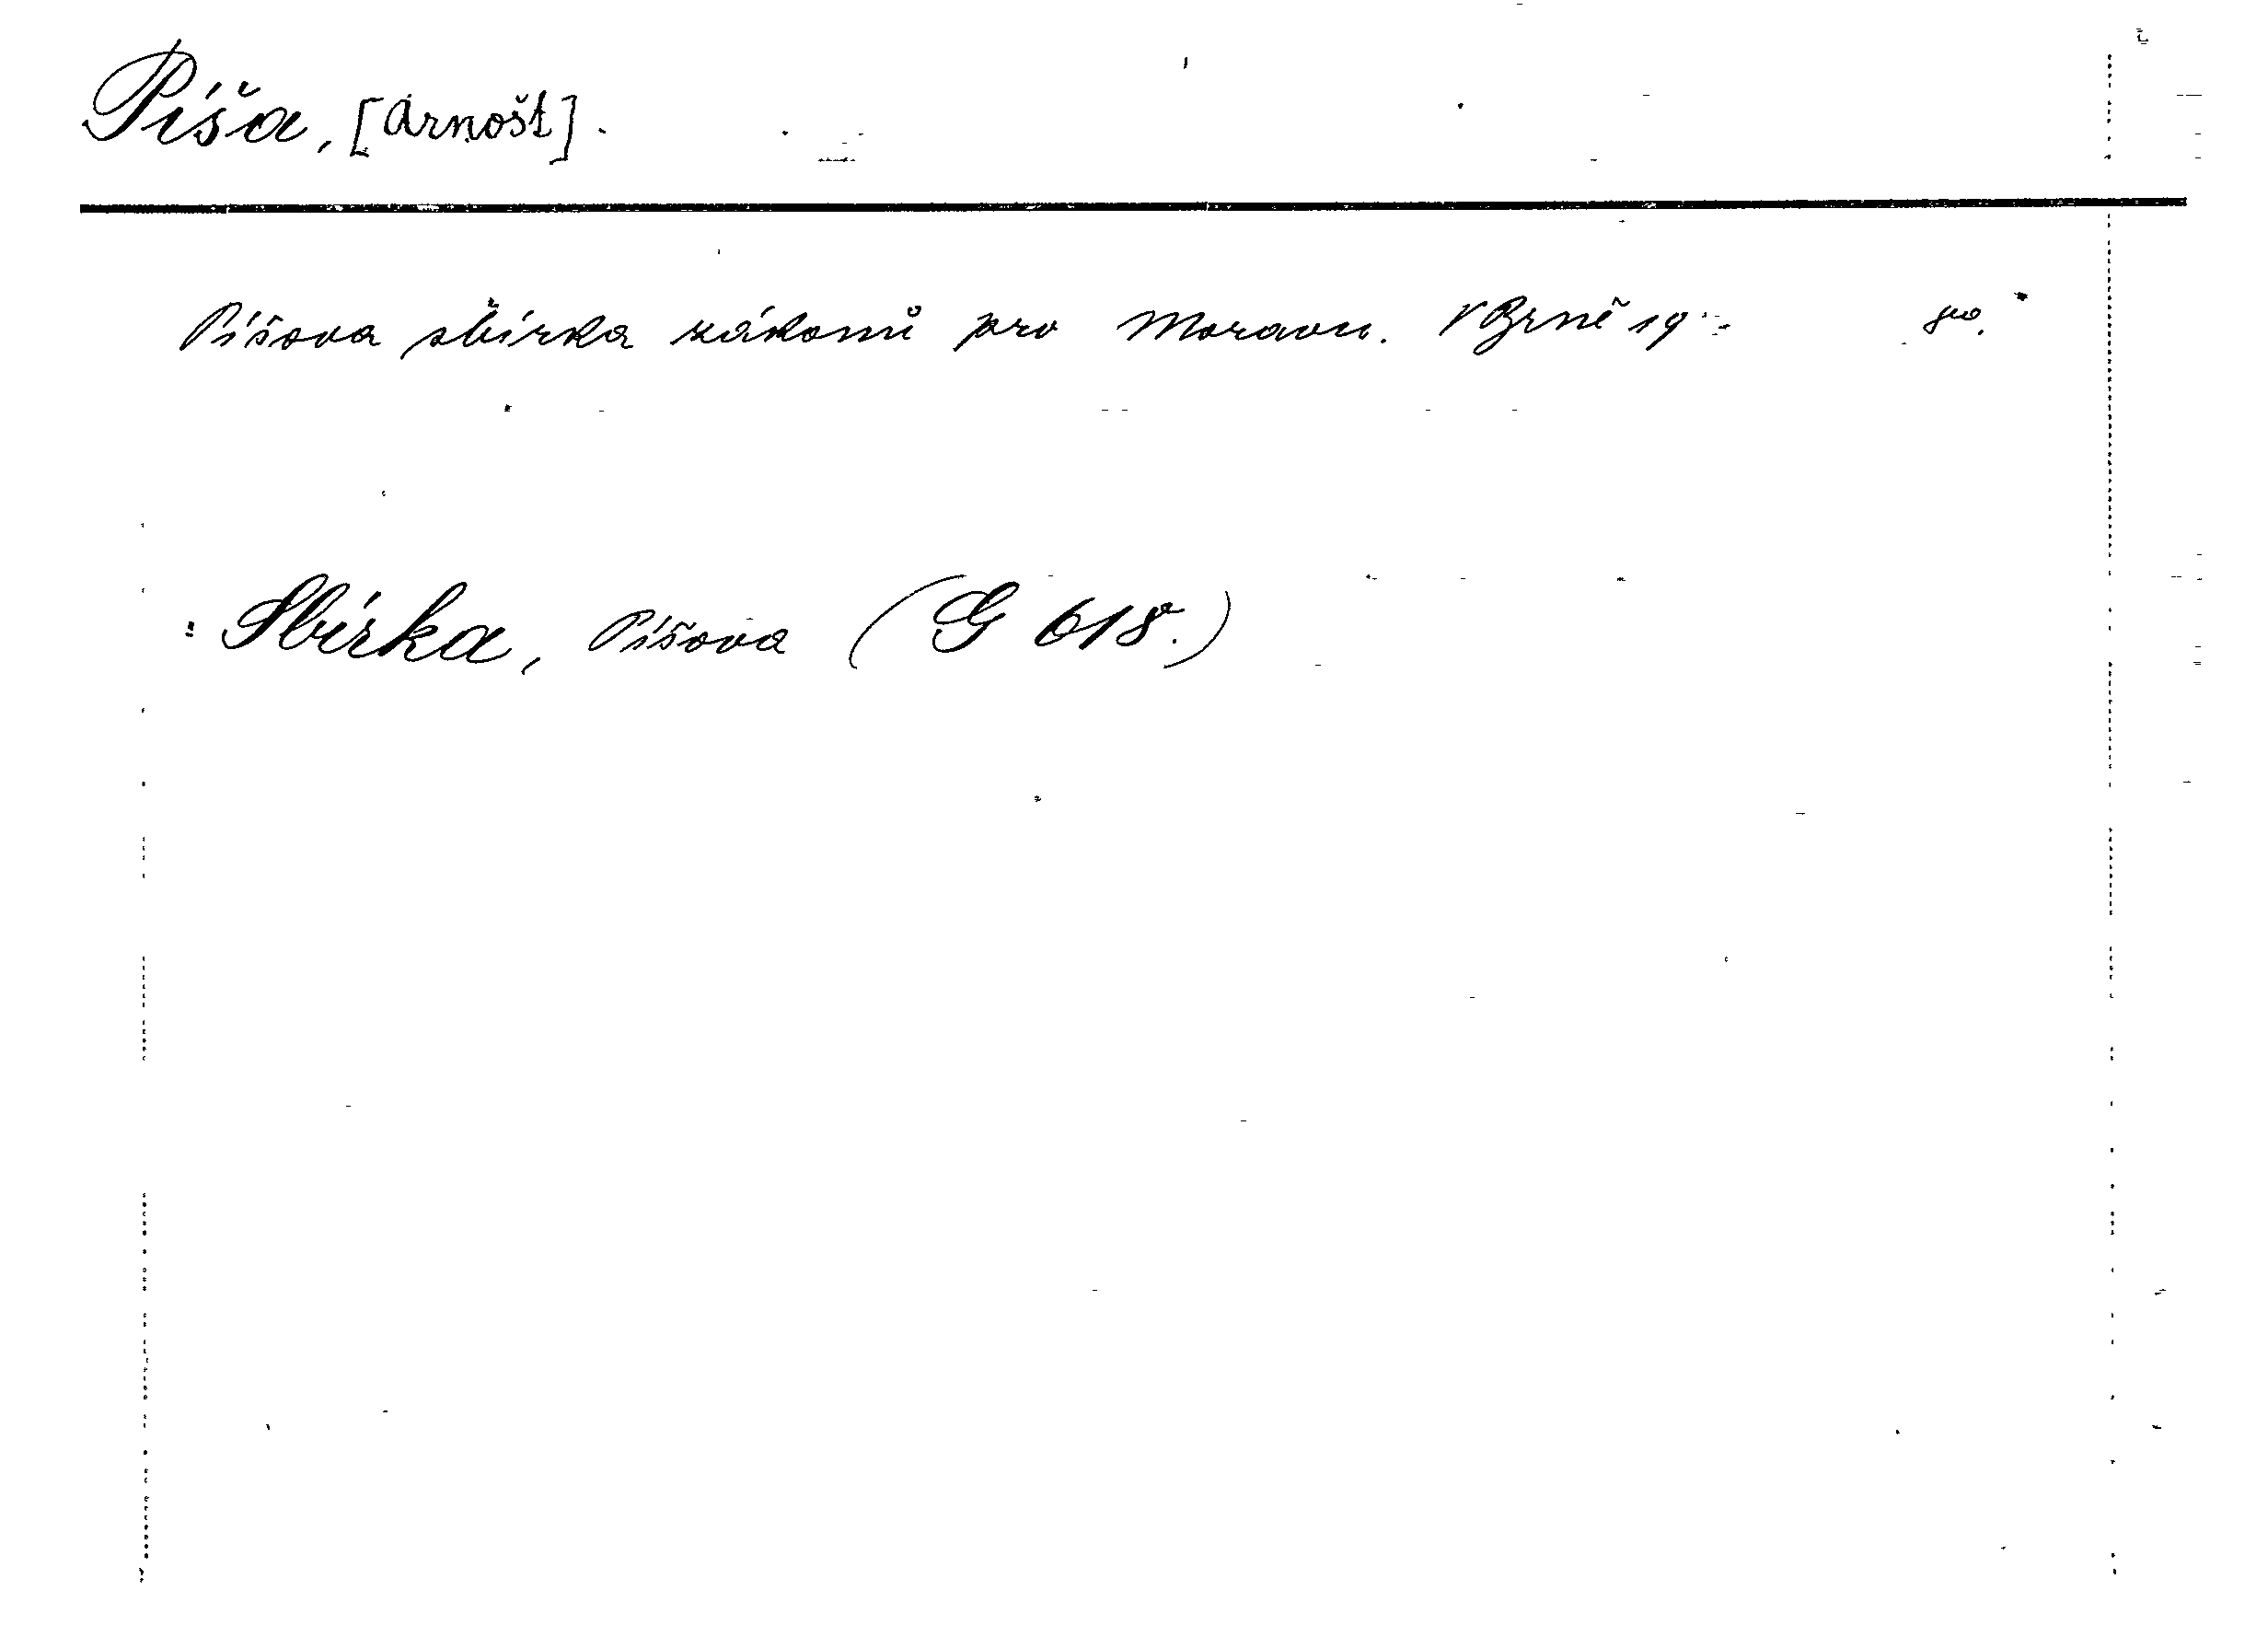 Píša, [Arnošt].
Píšova sbírka zákonů pro Moravu. V Brně 19 8º.
Sbírka, Píšova (G 618.)